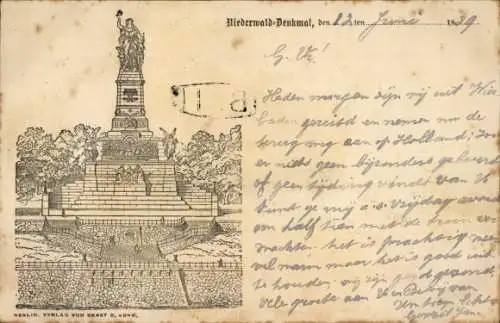 Niederwald-Denkmal, den 12ten Juni 1889
G. V.!
Heden morgen zijn wij uit Wies
baden gereisd en nemen nu de
terug weg aan op Holland; zoo
er niets geen bijzonders gebeurd
of geen tijding vindt van U
kunt ge mij a.s. vrijdag avond
om half tien met de trein ver
wachten. het is prachtig mooi
vel warm maar het is goed uit
te houden; wij zijn goed gezond
vele groete aan U en
BERLIN, VERLAG VON ERNST